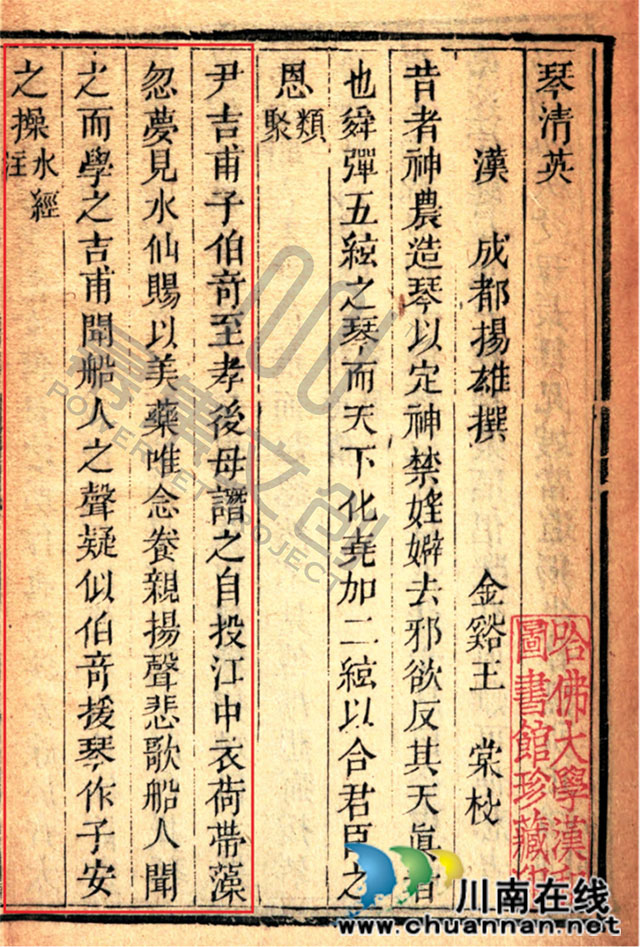 琴清英
漢　成都揚雄撰　　金谿王　棠校
昔者神農造琴以定神禁婬嬖去邪欲反其天眞者
也舜彈五絃之琴而天下化堯加二絃以合君臣之
恩類聚
尹吉甫子伯奇至孝後母譖之自投江中衣荷帶藻
忽夢見水仙賜以美藥唯念養親揚聲悲歌船人聞
之而學之吉甫聞船人之聲疑似伯奇援琴作子安
之操水經注
哈佛大學漢和
圖書館珍藏
POWERNET PROJECT
川南在线
www.chuannan.net